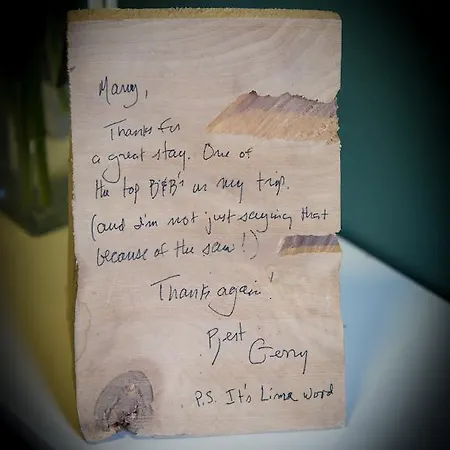 Mary,
Thanks for
a great stay. One of
the top B&B's on my trip.
(and I'm not just saying that
because of the saw!)
Thanks again!
Gerry
P.S. It's Lima word